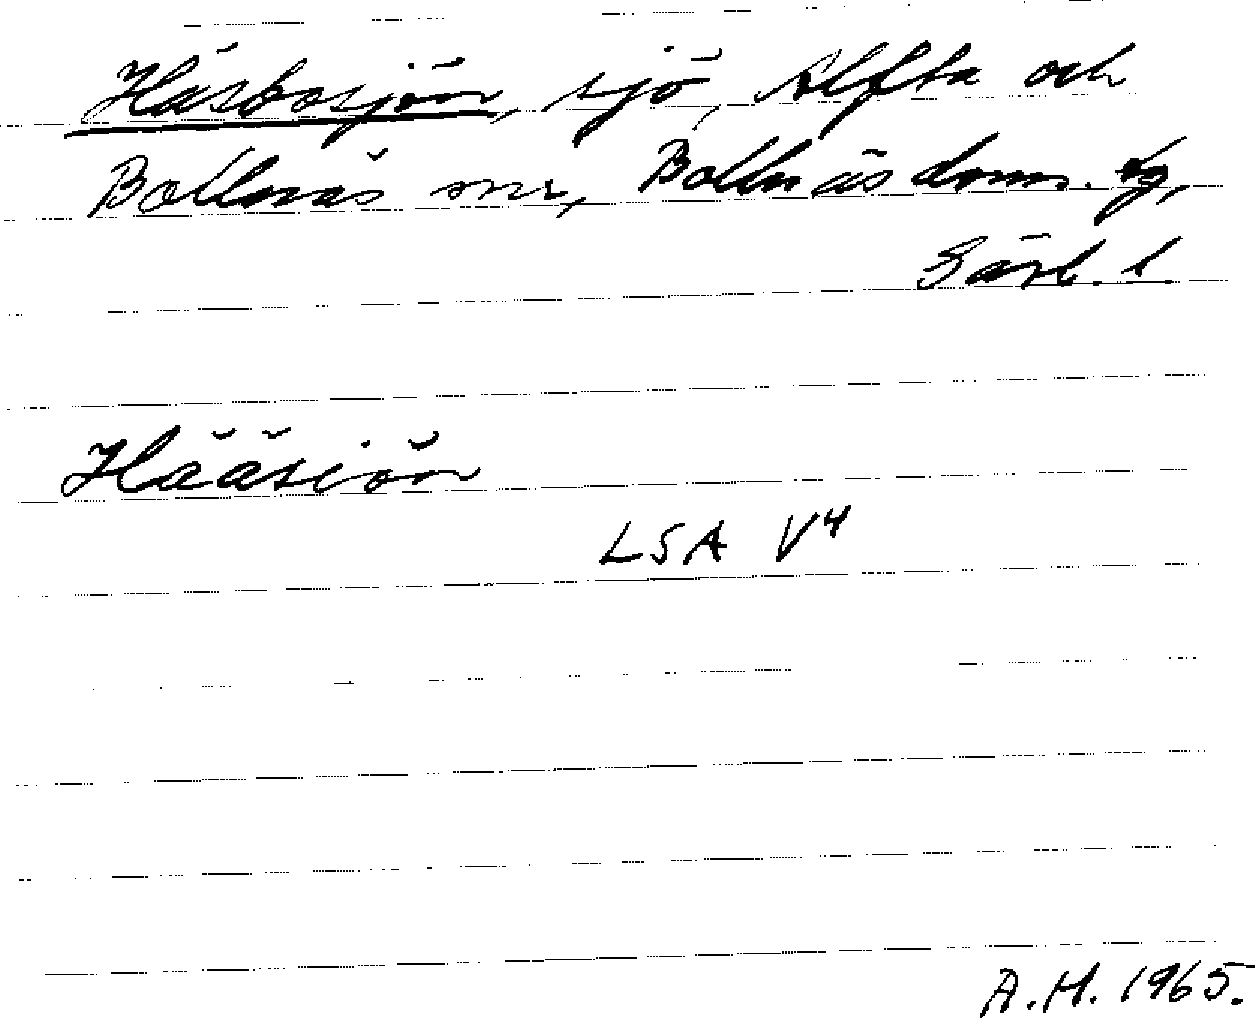 Häsbosjön, sjö, Alfta och
Bollnäs snr, Bollnäs doms. tg,
Gävl. l
Hääsiön
LSA V4
A.H. 1965.